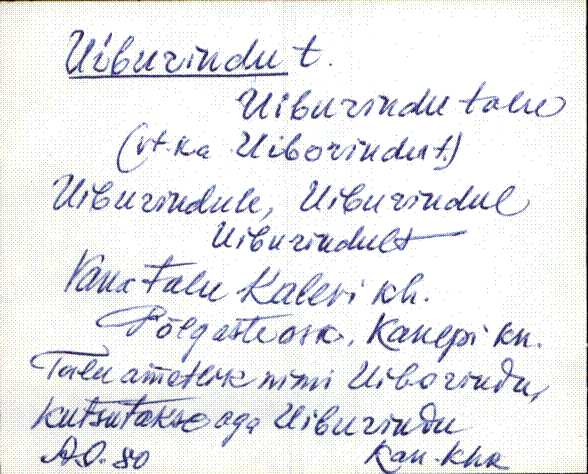 Uiburindu t.
Uiburindu talu
(vt. ka Uiborindu t.)
Uiburindule, Uiburindul
Uiburindult
Vana talu Kaleri kh.
Põlgaste osk. Kanepi kn.
Talu ametlik nimi Uiborindu,
kutsutakse aga Uiburindu
A.O. 80 Kan. khk